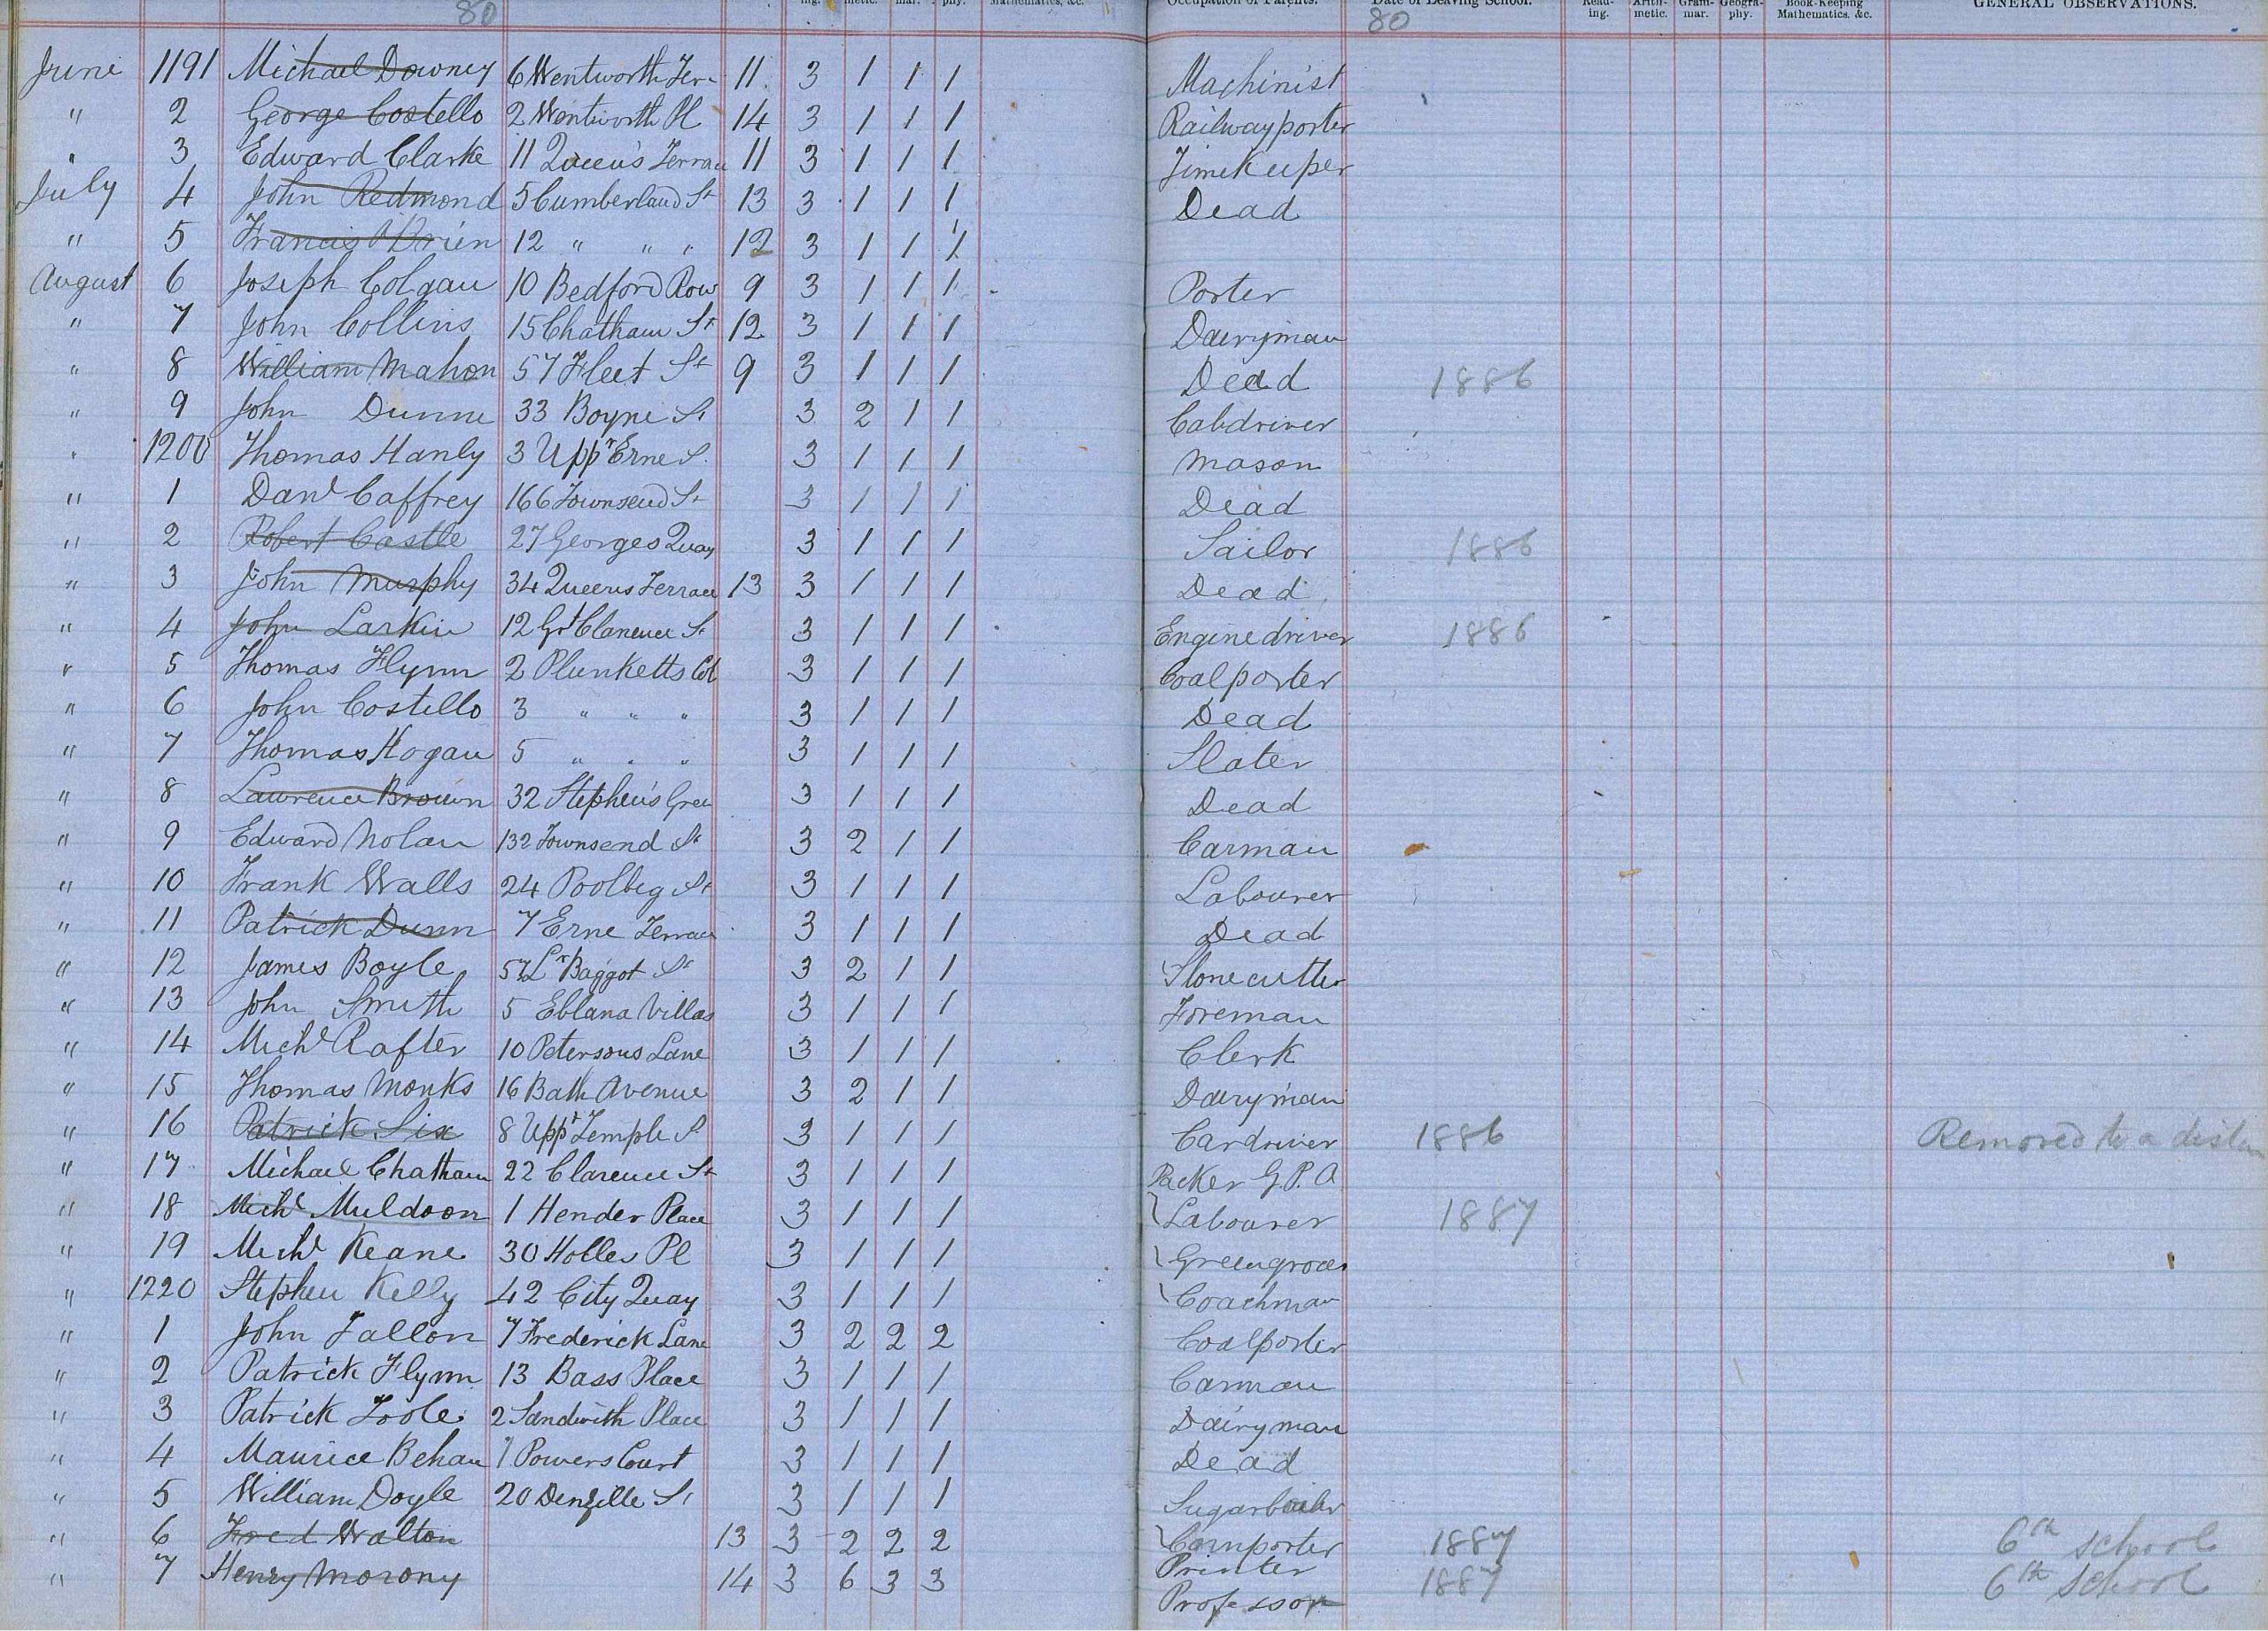 80 ing. metic. mar. phy. Mathematics, &c. Occupation of Parents. Date of Leaving School. 80 Read-ing. Arith-metic. Gram-mar. Geogra-phy. Book-Keeping Mathematics, &c. GENERAL OBSERVATIONS.
June 1191 Michael Downey 6 Wentworth Ter. 11 3 1 1 1 Machinist
" 2 George Costello 2 Wentworth Pl 14 3 1 1 1 Railwayporter
" 3 Edward Clarke 11 Queen's Terrace 11 3 1 1 1 Timekeeper
July 4 John Redmond 5 Cumberland St 13 3 1 1 1 Dead
" 5 Francis O'Brien 12 " " " 12 3 1 1 1
August 6 Joseph Colgan 10 Bedford Row 9 3 1 1 1 Porter
" 7 John Collins 15 Chatham St 12 3 1 1 1 Dairyman
" 8 William Mahon 57 Fleet St 9 3 1 1 1 Dead 1886
" 9 John Dunne 33 Boyne St 3 2 1 1 Cabdriver
" 1200 Thomas Hanly 3 Uppr Erne S. 3 1 1 1 Mason
" 1 Danl Caffrey 166 Townsend St 3 1 1 1 Dead
" 2 Robert Castle 27 Georges Quay 3 1 1 1 Sailor 1886
" 3 John Murphy 34 Queens Terrace 13 3 1 1 1 Dead
" 4 John Larkin 12 Gt Clarence St 3 1 1 1 Enginedriver 1886
" 5 Thomas Flynn 2 Plunketts Cot 3 1 1 1 Coalporter
" 6 John Costello 3 " " " 3 1 1 1 Dead
" 7 Thomas Hogan 5 " " " 3 1 1 1 Slater
" 8 Lawrence Brown 32 Stephen's Green 3 1 1 1 Dead
" 9 Edward Nolan 132 Townsend St 3 2 1 1 Carman
" 10 Frank Walls 24 Poolbeg St 3 1 1 1 Labourer
" 11 Patrick Dunn 7 Erne Terrace 3 1 1 1 Dead
" 12 James Boyle 57 Lr Baggot St 3 2 1 1 Stonecutter
" 13 John Smith 5 Eblana Villas 3 1 1 1 Foreman
" 14 Michl Rafter 10 Petersons Lane 3 1 1 1 Clerk
" 15 Thomas Monks 16 Bath Avenue 3 2 1 1 Dairyman
" 16 Patrick Six 8 Uppr Temple S 3 1 1 1 Cardriver 1886 Removed to a distan
" 17 Michael Chatham 22 Clarence St 3 1 1 1 Packer G.P.O
" 18 Michl Muldoon 1 Hender Place 3 1 1 1 Labourer 1887
" 19 Michl Keane 30 Holles Pl 3 1 1 1 Greengrocer
" 1220 Stephen Kelly 42 City Quay 3 1 1 1 Coachman
" 1 John Fallon 7 Frederick Lane 3 2 2 2 Coalporter
" 2 Patrick Flynn 13 Bass Place 3 1 1 1 Carman
" 3 Patrick Toole 2 Sandwith Place 3 1 1 1 Dairyman
" 4 Maurice Behan 1 Powers Court 3 1 1 1 Dead
" 5 William Doyle 20 Denzille St 3 1 1 1 Sugarboiler
" 6 Fred Walton 13 3 2 2 2 Cornporter 1887 6th school
" 7 Henry Morony 14 3 6 3 3 Printer 1887 6th school
Professor